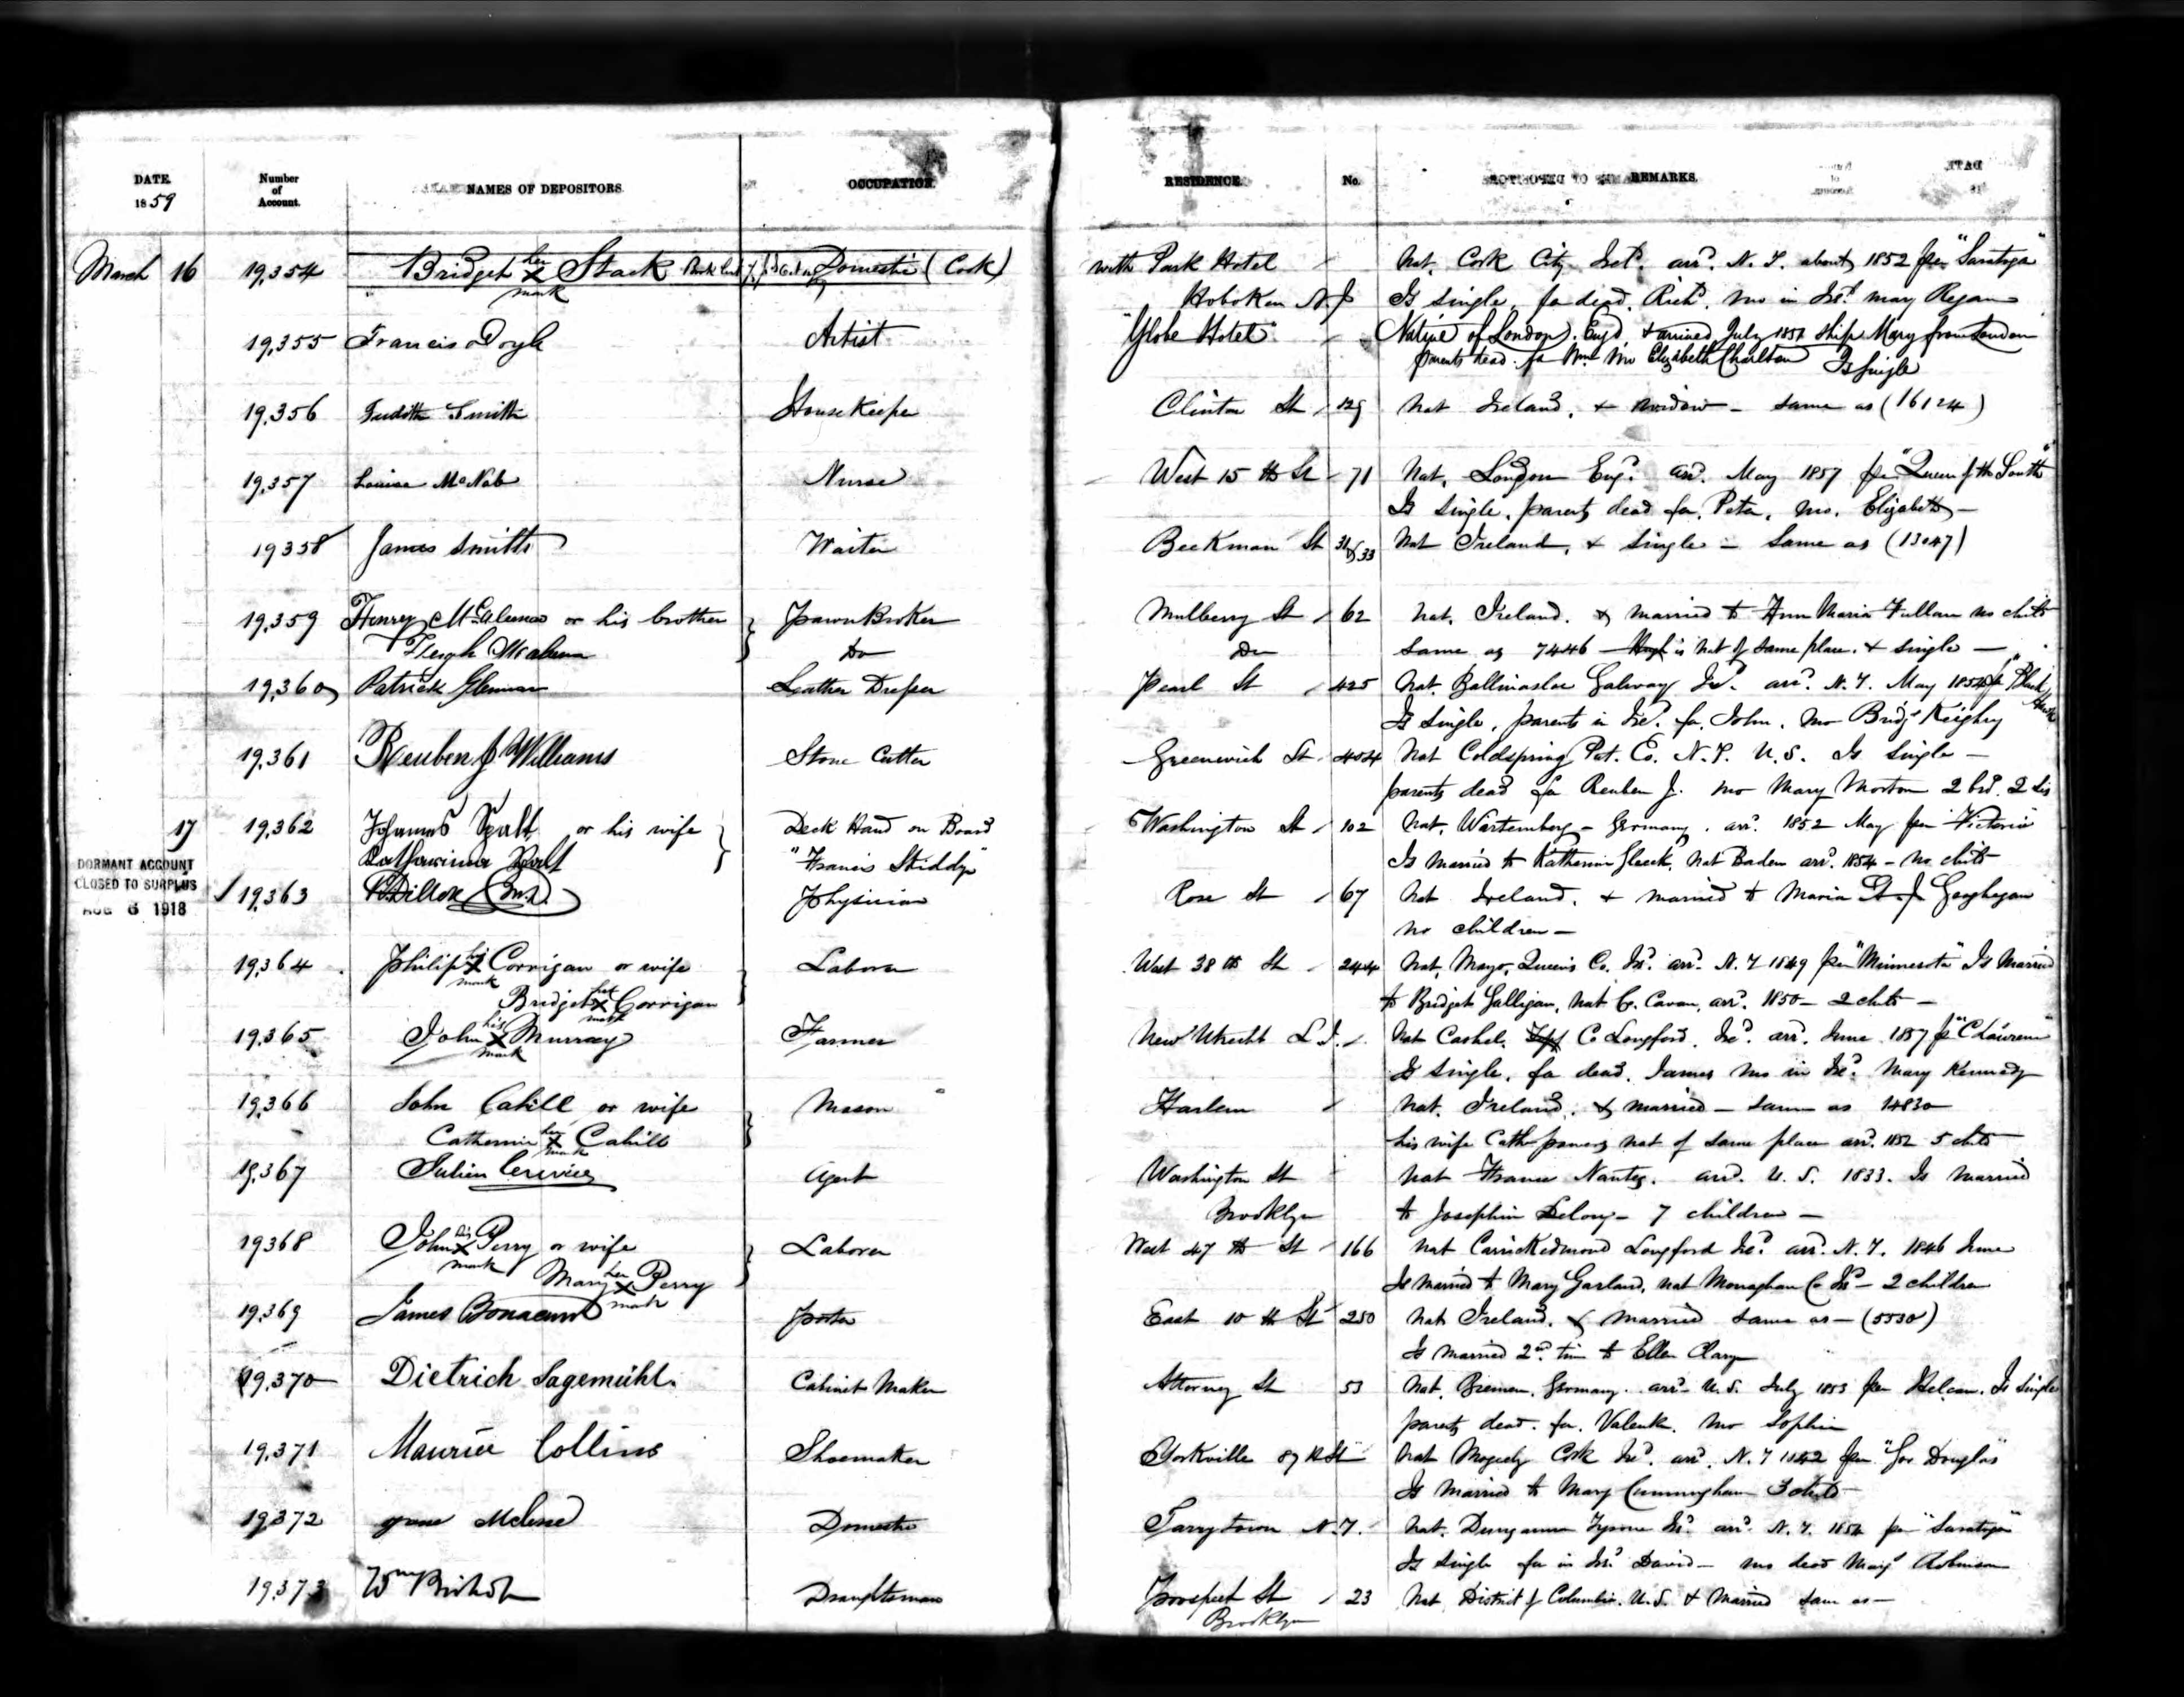 DATE. Number of Account. NAMES OF DEPOSITORS. OCCUPATION. RESIDENCE. No. REMARKS.
1859
March 16 19,354 Bridget her X mark Stack Domestic (Cook) with Park Hotel Nat. Cork City Ireld. arrd. N.Y. about 1852 per "Saratoga"
Hoboken N.J Is single, fa dead, Richd. mo in Ireld. Mary Regan
19,355 Francis Doyle Artist "Globe Hotel" Native of London, Engd & arrived July 1857 Ship Mary from London
parents dead. fa Wm. mo Elizabeth Charlton Is single
19,356 Judith Smith HouseKeeper Clinton St 129 Nat Ireland, & widow - same as (16124)
19,357 Louisa McNab Nurse West 15th St 71 Nat. London Engd. arrd. May 1857 per "Queen of the South"
Is single, parents dead fa. Peter, mo. Elizabeth -
19358 James Smith Waiter Beekman St 31 & 33 Nat Ireland, & single - same as (13047)
19,359 Henry McAleenan or his brother PawnBroker Mulberry St 62 Nat. Ireland, & married to Ann Maria no child
Hugh McAleenan Do Do same as 7446 - Hugh is nat of same place. & single -
19,360 Patrick Glennan Leather Dresser Pearl St 425 Nat. Ballinasloe Galway Ird. arrd. N.Y. May 1854 pr "Black Hawk"
Is single, parents in Ird. fa. John, mo Bridgt Keighry
19,361 Reuben J Williams Stone Cutter Greenwich St 404 Nat Coldspring Put. Co. N.Y. U.S. Is single -
parents dead fa Reuben J. mo Mary Morton 2 brs. 2 sis
17 19,362 Johannes Spalt or his wife Deck Hand on Board Washington St 102 Nat. Wurtemberg - Germany. arrd. 1852 May per Victoria
Catharina Spalt "Francis Skiddy" Is married to Katharin Gleeck, nat Baden arrd. 1854 - no childn
DORMANT ACCOUNT
CLOSED TO SURPLUS
AUG 6 1918
19,363 Dillon M.D. Physician Rose St 67 Nat Ireland, & married to Maria Geoghegan
no children -
19,364 Philip his X mark Corrigan or wife Laborer West 38th St 244 Nat. Mayo, Queen's Co. Ird. arrd. N.Y 1849 per "Minnesota" Is married
Bridget her X mark Corrigan to Bridget Galligan, nat Co. Cavan, arrd. 1850 - 2 childn -
19,365 John his X mark Murray Farmer New Utrecht L.I. Nat Cashel, Co Longford. Ird. arrd. June 1857 pr "C Lawrence"
Is single, fa dead, James mo in Ird. Mary Kennedy
19,366 John Cahill or wife Mason Harlem Nat. Ireland, & married - same as 14830
Catherine her X mark Cahill his wife Cath nat of same place arrd. 1852 5 childn
19,367 Julien Agent Washington St Nat France Nantes. arrd. U.S. 1833. Is married
Brooklyn to Josephin Delong - 7 children -
19368 John his X mark Perry or wife Laborer West 47th St 166 Nat Carrickedmond Longford Ird. arrd. N.Y. 1846 June
Mary her X mark Perry Is married to Mary Garland, nat Monaghan Co Ird - 2 children
19,369 James Porter East 10th St 250 Nat Ireland, & married same as - (5530)
Is married 2nd. time to Ellen Clary
19,370 Dietrich Sagemühl. Cabinet Maker Attorney St 53 Nat. Bremen, Germany. arrd U.S. July 1853 per Is single
parents dead. fa. mo Sophia
19,371 Maurice Collins Shoemaker Yorkville 87th St Nat Mogeely Cork Ird. arrd. N.Y 1842 per "Jas Douglas"
Is married to Mary Cunningham 3 childn
19,372 Domestic Tarrytown N.Y. Nat. Dungannon Tyrone Ird. arrd. N.Y. 1854 per "Saratoga"
Is single fa in Ird. David - mo dead Mary Robinson
19,373 Wm Draughtsman Prospect St 23 Nat. District of Columbia. U.S. & married same as -
Brooklyn